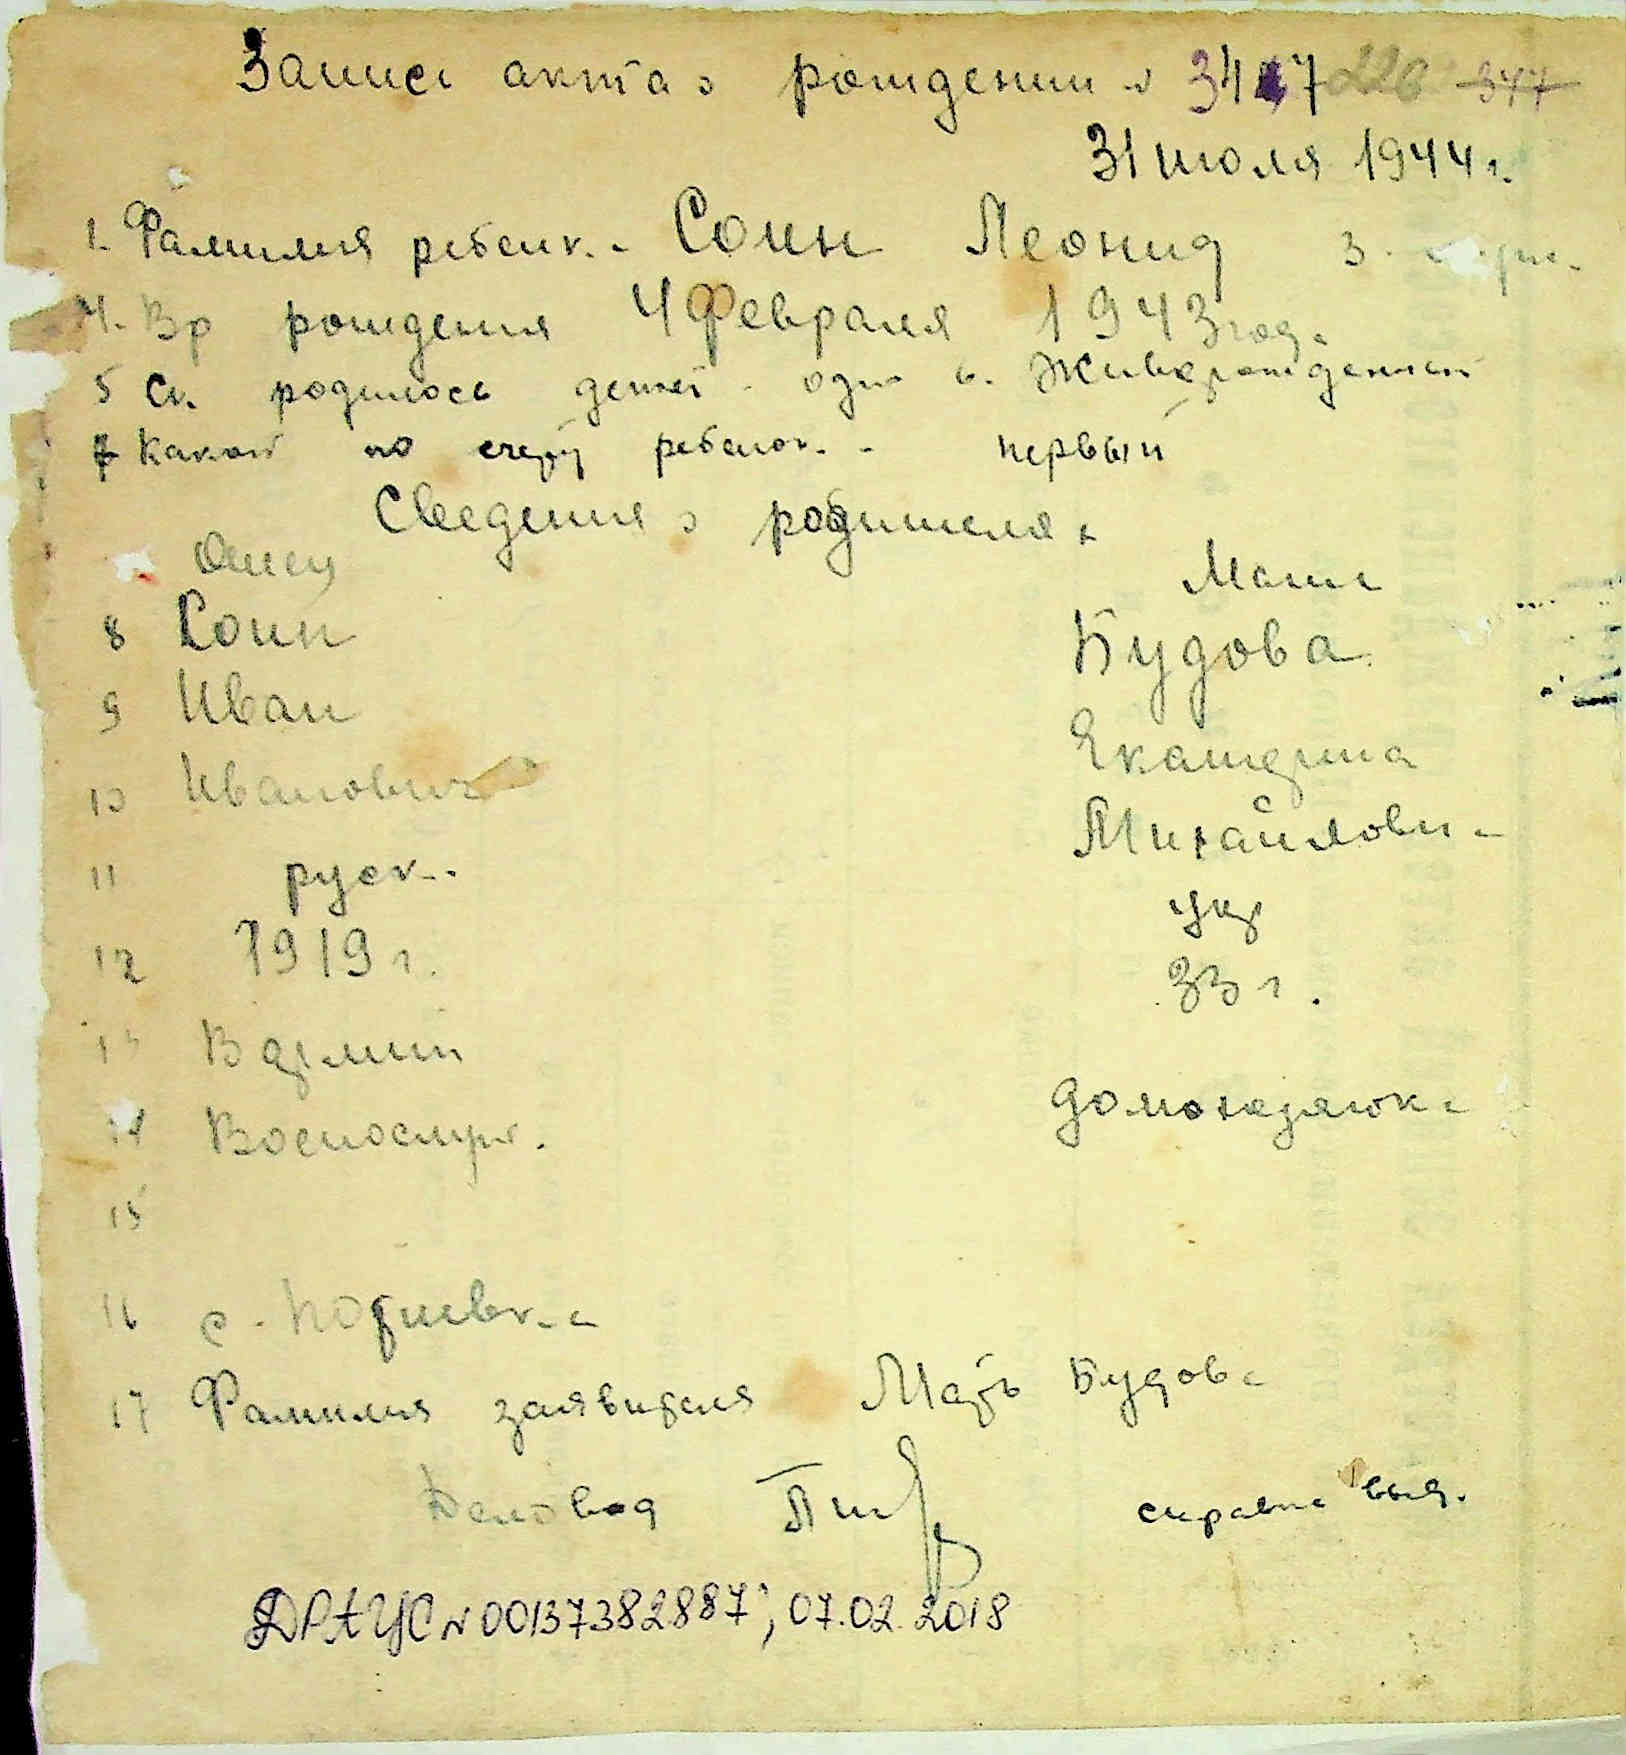 Запись акта о рождении N 3417 226 347
31 июля 1944 г.
1. Фамилия ребенк. - Соин Леонид 3.
4. Вр рождения 4 Февраля 1943 год.
5 Ск. родилось детей - одн 6. Живорожденный
7 Какой по счету ребенок. - первый
Сведения о родителях
Отец Мать
8 Соин Будова
9 Иван Екатерина
10 Иванович Михайловн
11 руск. укр
12 1919 г. 33 г.
13 В армии
14 Военослуж. домохазяюка
15
16 с.
17 Фамилия заявителя Мать Будова
Деловод справка выд.
ДРАЦС N 00137382887; 07.02.2018